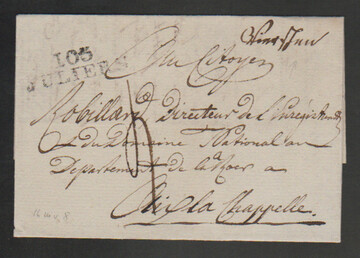 Viersen
103
JULIERS
Au Citoyen
Robillard Directeur de l'Enregistrement
& du Domaine National au
Departement de la Roer a
Aix la Chappelle.